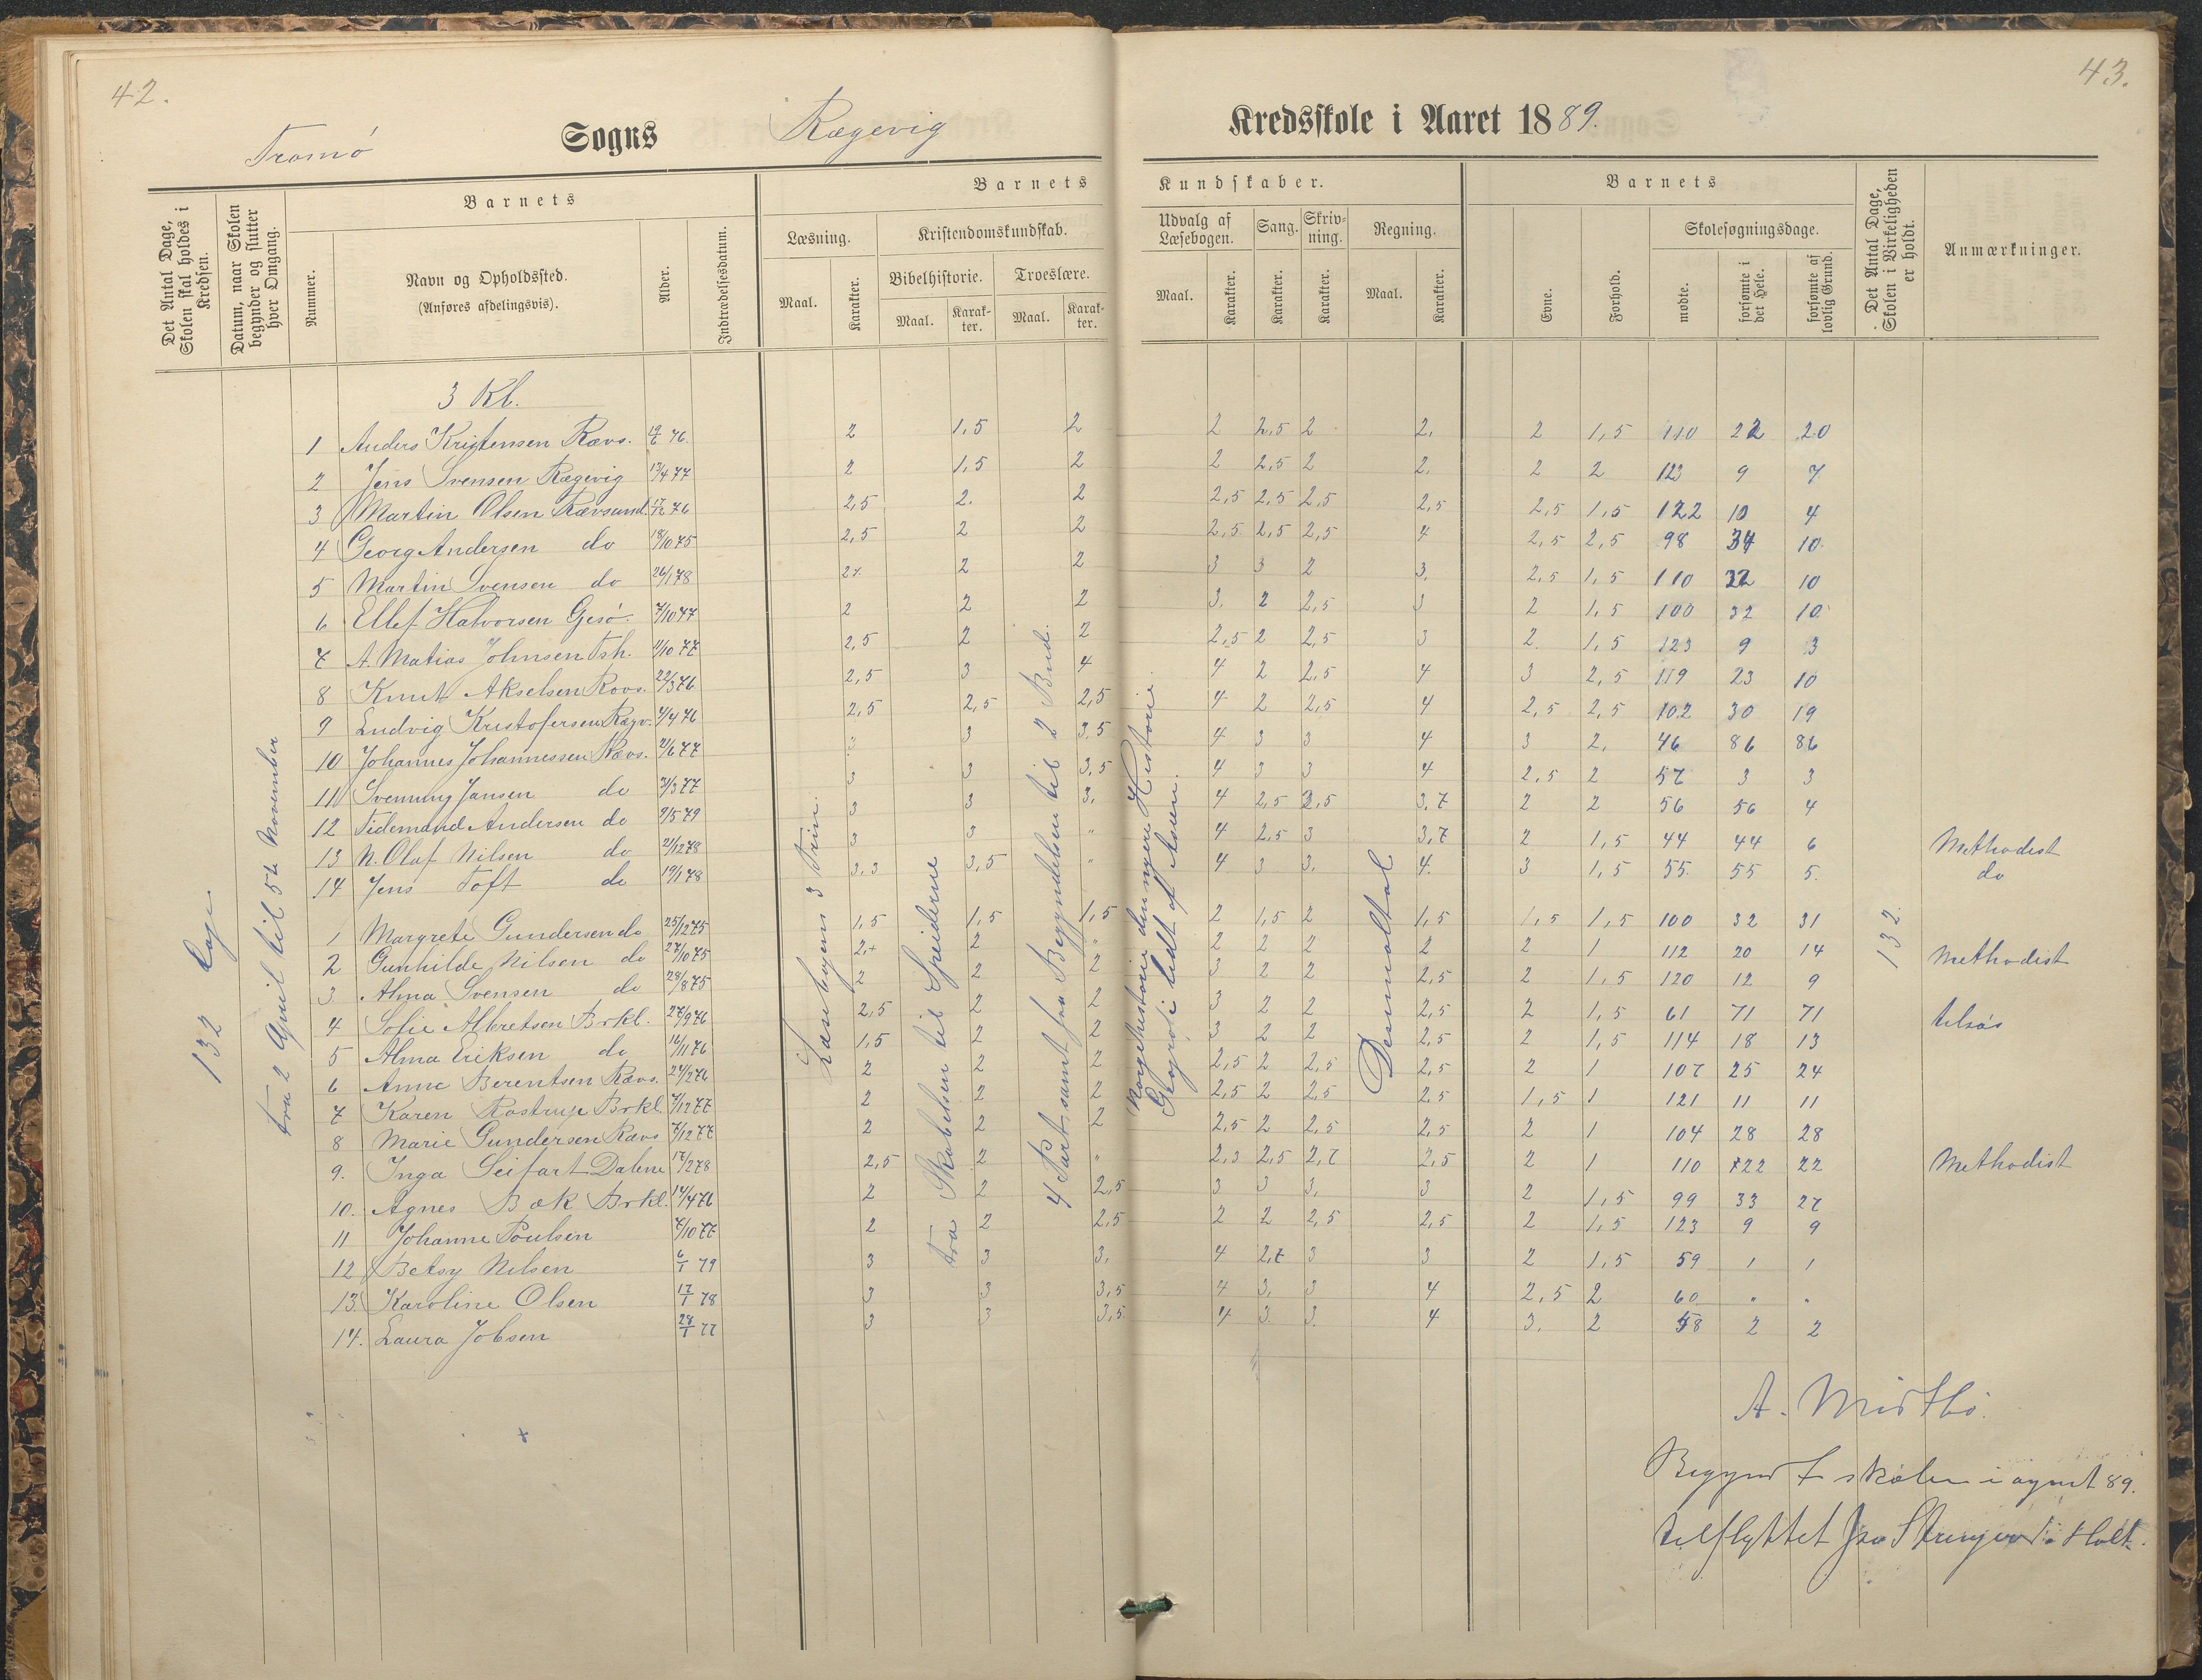 42.
43.
Tromø Sogns Rægevig Kredsskole i Aaret 1889.
Det Antal Dage, Skolen skal holdes i Kredsen.
Datum, naar Skolen begynder og slutter hver Omgang.
Barnets
Nummer.
Navn og Opholdssted.
(Anføres afdelingsvis).
Alder.
Indtrædelsesdatum.
Barnets Kundskaber.
Læsning.
Maal.
Karakter.
Kristendomskundskab.
Bibelhistorie.
Maal.
Karakter.
Troeslære.
Maal.
Karakter.
Udvalg af Læsebogen.
Maal.
Karakter.
Sang.
Karakter.
Skrivning.
Karakter.
Regning.
Maal.
Karakter.
Barnets
Evne.
Forhold.
Skolesøgningsdage.
mødte.
forsømte i det Hele.
forsømte af lovlig Grund.
Det Antal Dage, Skolen i Virkeligheden er holdt.
Anmærkninger.
132 Dage
fra 2 April til 5te November
Læsebogens 3 Trin.
fra Skabelsen til Speiderne
4 Part, samt fra Begyndelsen til 2 Bud.
Norgeshistorie den nyere Historie.
Geografi lidt af Asien.
Desimaltal
132.
3 Kl.
1 Anders Kristensen Rævs. 19/6 76. 2 1,5 2 2 2,5 2 2. 2 1,5 110 22 20
2 Jens Svensen Rægevig 13/4 77 2 1,5 2 2 2,5 2 2. 2 2 123 9 7
3 Martin Olsen Rævsund. 17/12 76 2,5 2. 2 2,5 2,5 2,5 2,5 2,5 1,5 122 10 4
4 Georg Andersen do 18/10 75 2,5 2 2 2,5 2,5 2,5 4 2,5 2,5 98 34 10
5 Martin Svensen do 26/1 78 2 2 3 3 2 3. 2,5 1,5 110 32 10
6 Ellef Halvorsen Gjesø. 7/10 77 2 2 2 3. 2 2,5 3 2 1,5 100 32 10
7 A. Matias Johnsen Tsh. 11/10 77 2,5 2 2 2,5 2 2,5 3 2. 1,5 123 9 3
8 Knut Akselsen Rovs. 22/3 76 2,5 3 4 4 2 2,5 4 3 2,5 119 23 10
9 Ludvig Kristofersen Rægv. 4/4 76 2,5 2,5 2,5 4 2 2,5 4 2,5 2,5 102 30 19
10 Johannes Johannessen Rævs. 2/6 77 3 3,5 4 3 3 4 3 2. 46 86 86
11 Svenning Jansen do 3/3 77 3 3 3,5 4 3 3 4 2,5 2 57 3 3
12 Tidemand Andersen do 9/5 79 3 3 3. 4 2,5 2,5 3,7 2 2 56 56 4
13 N. Olaf Nilsen do 21/12 78 3 3 " 4 2,5 3 3,7 2 1,5 44 44 6 Methodist
14 Jens Toft do 19/1 78 3,3 3,5 " 4 3 3. 4. 3 1,5 55. 55 5. do
1 Margrete Gundersen do 25/12 75 1,5 1,5 1,5 2 1,5 2 1,5 1,5 1,5 100 32 31
2 Gunhilde Nilsen do 27/10 75 2,+ 2 " 2 2 2 2 2 1 112 20 14 Methodist
3 Alma Svensen do 28/8 75 2 2 2 3 2 2 2,5 2 1,5 120 12 9
4 Sofie Albretsen Brkl. 27/9 76 2,5 2 2 3 2 2 2,5 2 1,5 61 71 71
5 Alma Eriksen do 16/11 76 1,5 2 2 3 2 2 2,5 2 1,5 114 18 13
6 Anne Berentsen Rævs. 24/2 76 2 2 2 2,5 2 2,5 2,5 2 1 107 25 24
7 Karen Rostrup Brkl. 7/12 77 2 2 2 2,5 2 2,5 2,5 1,5 1 121 11 11
8 Marie Gundersen Rævs 7/12 77 2 2 2 2,5 2 2,5 2,5 2 1 104 28 28
9. Inga Seifart Dalene 17/2 78 2,5 2 " 2,3 2,5 2,7 2,5 2 1 110 22 22 Methodist
10. Agnes Bok Brkl. 14/4 76 2 2 2,5 3 3 3. 3 2 1,5 99 33 27
11 Johanne Poulsen 7/10 77 2 2 2,5 2 2 2,5 2,5 2 1,5 123 9 9
12 Betsy Nilsen 6/1 79 3 3 3. 4 2,7 3 3 2 1,5 59 1 1
13. Karoline Olsen 17/1 78 3 3 3,5 4 3. 3 4 2,5 2 60 " "
14. Laura Jobsen 28/1 77 3 3 3,5 4 3 3. 4 3. 2 58 2 2
A. Midtbø.
Begyndt skolen i august 89.
tilflyttet fra i Holt.